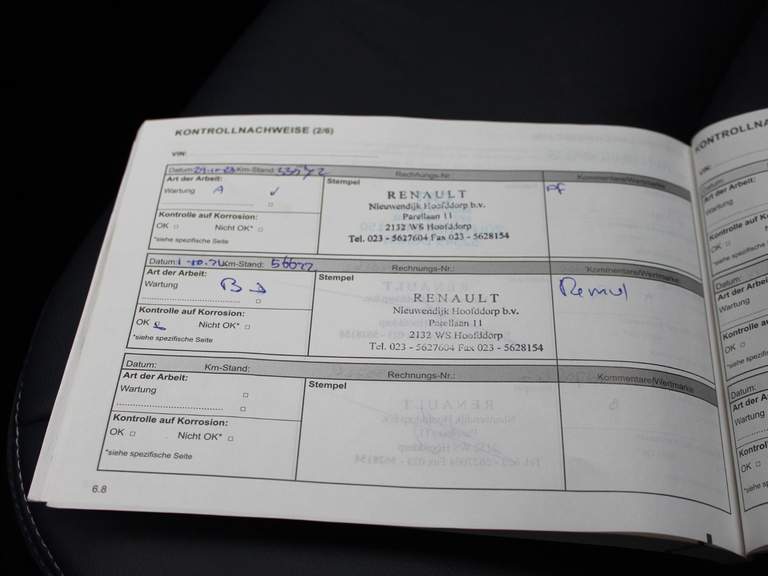 KONTROLLNACHWEISE (2/6)
VIN:
Datum: Km-Stand: Rechnungs-Nr.: Kommentare/Wertmarke
Art der Arbeit:
Wartung A
Kontrolle auf Korrosion:
OK Nicht OK*
*siehe spezifische Seite
Stempel
RENAULT
Nieuwendijk Hoofddorp b.v.
Parellaan 11
2132 WS Hoofddorp
Tel. 023 - 5627604 Fax 023 - 5628154
Datum: Km-Stand: Rechnungs-Nr.: Kommentare/Wertmarke
Art der Arbeit:
Wartung B
Kontrolle auf Korrosion:
OK Nicht OK*
*siehe spezifische Seite
Stempel
RENAULT
Nieuwendijk Hoofddorp b.v.
Parellaan 11
2132 WS Hoofddorp
Tel. 023 - 5627604 Fax 023 - 5628154
Datum: Km-Stand: Rechnungs-Nr.: Kommentare/Wertmarke
Art der Arbeit:
Wartung
Kontrolle auf Korrosion:
OK Nicht OK*
*siehe spezifische Seite
Stempel
6.8
KONTROLLNA
VIN:
Datum:
Art der Arbeit:
Wartung
Kontrolle auf
OK
*siehe spezifische
Datum:
Art der Arbeit:
Wartung
Kontrolle a
OK
*siehe spezi
Datum:
Art der A
Wartung
Kontrol
OK
*siehe sp